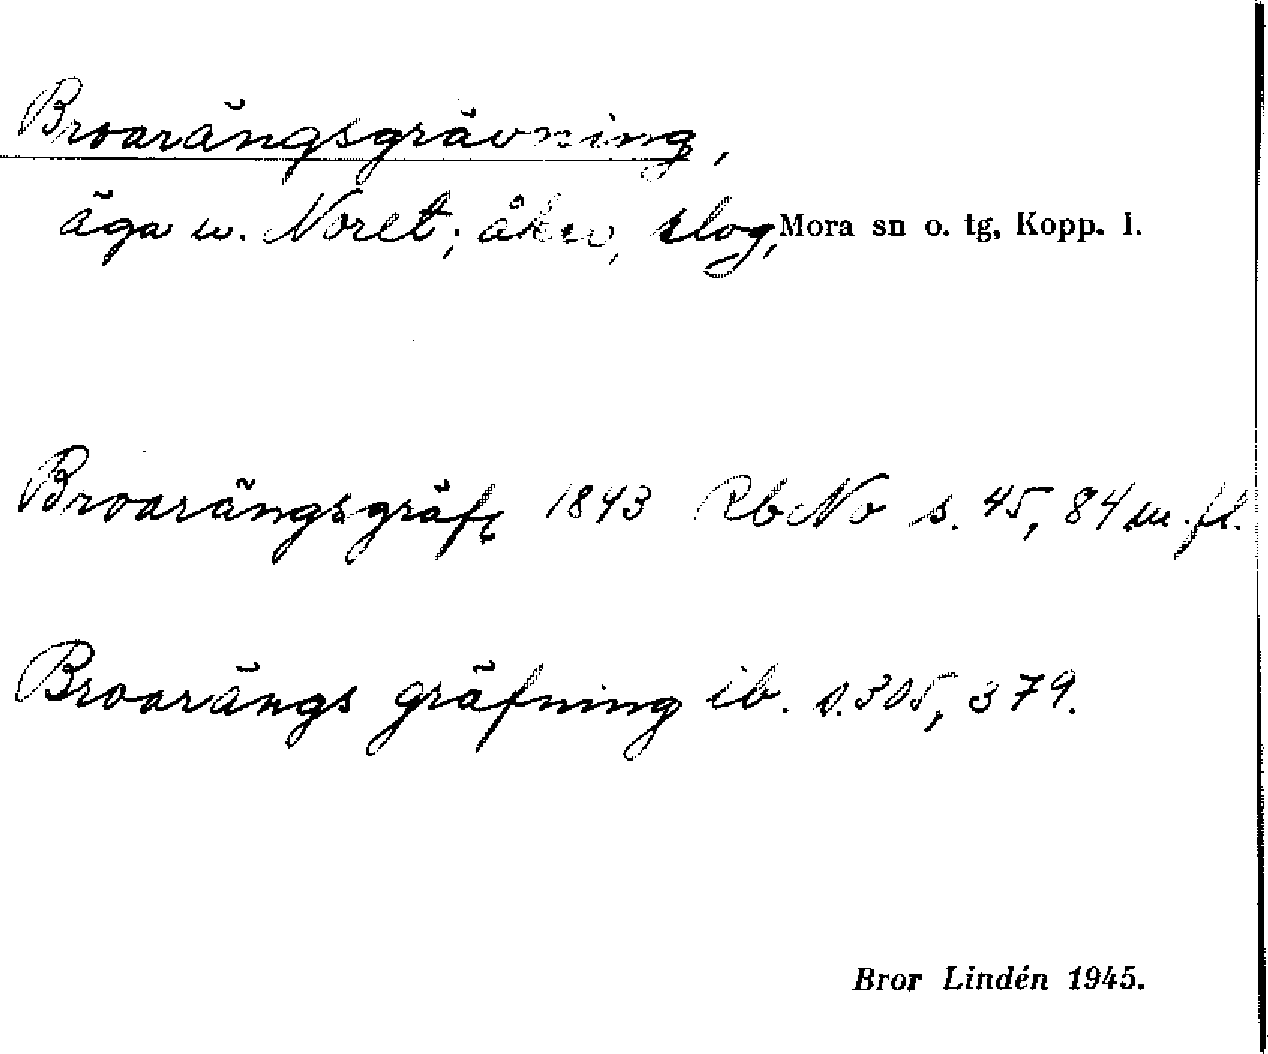 Broarängsgrävning,
äga u. Noret; åker, slog, Mora sn o. tg, Kopp. l.
Broarängsgräfg 1843 Rb No s. 45, 84 m. fl.
Broarängs gräfning ib. s. 305, 379.
Bror Lindén 1945.